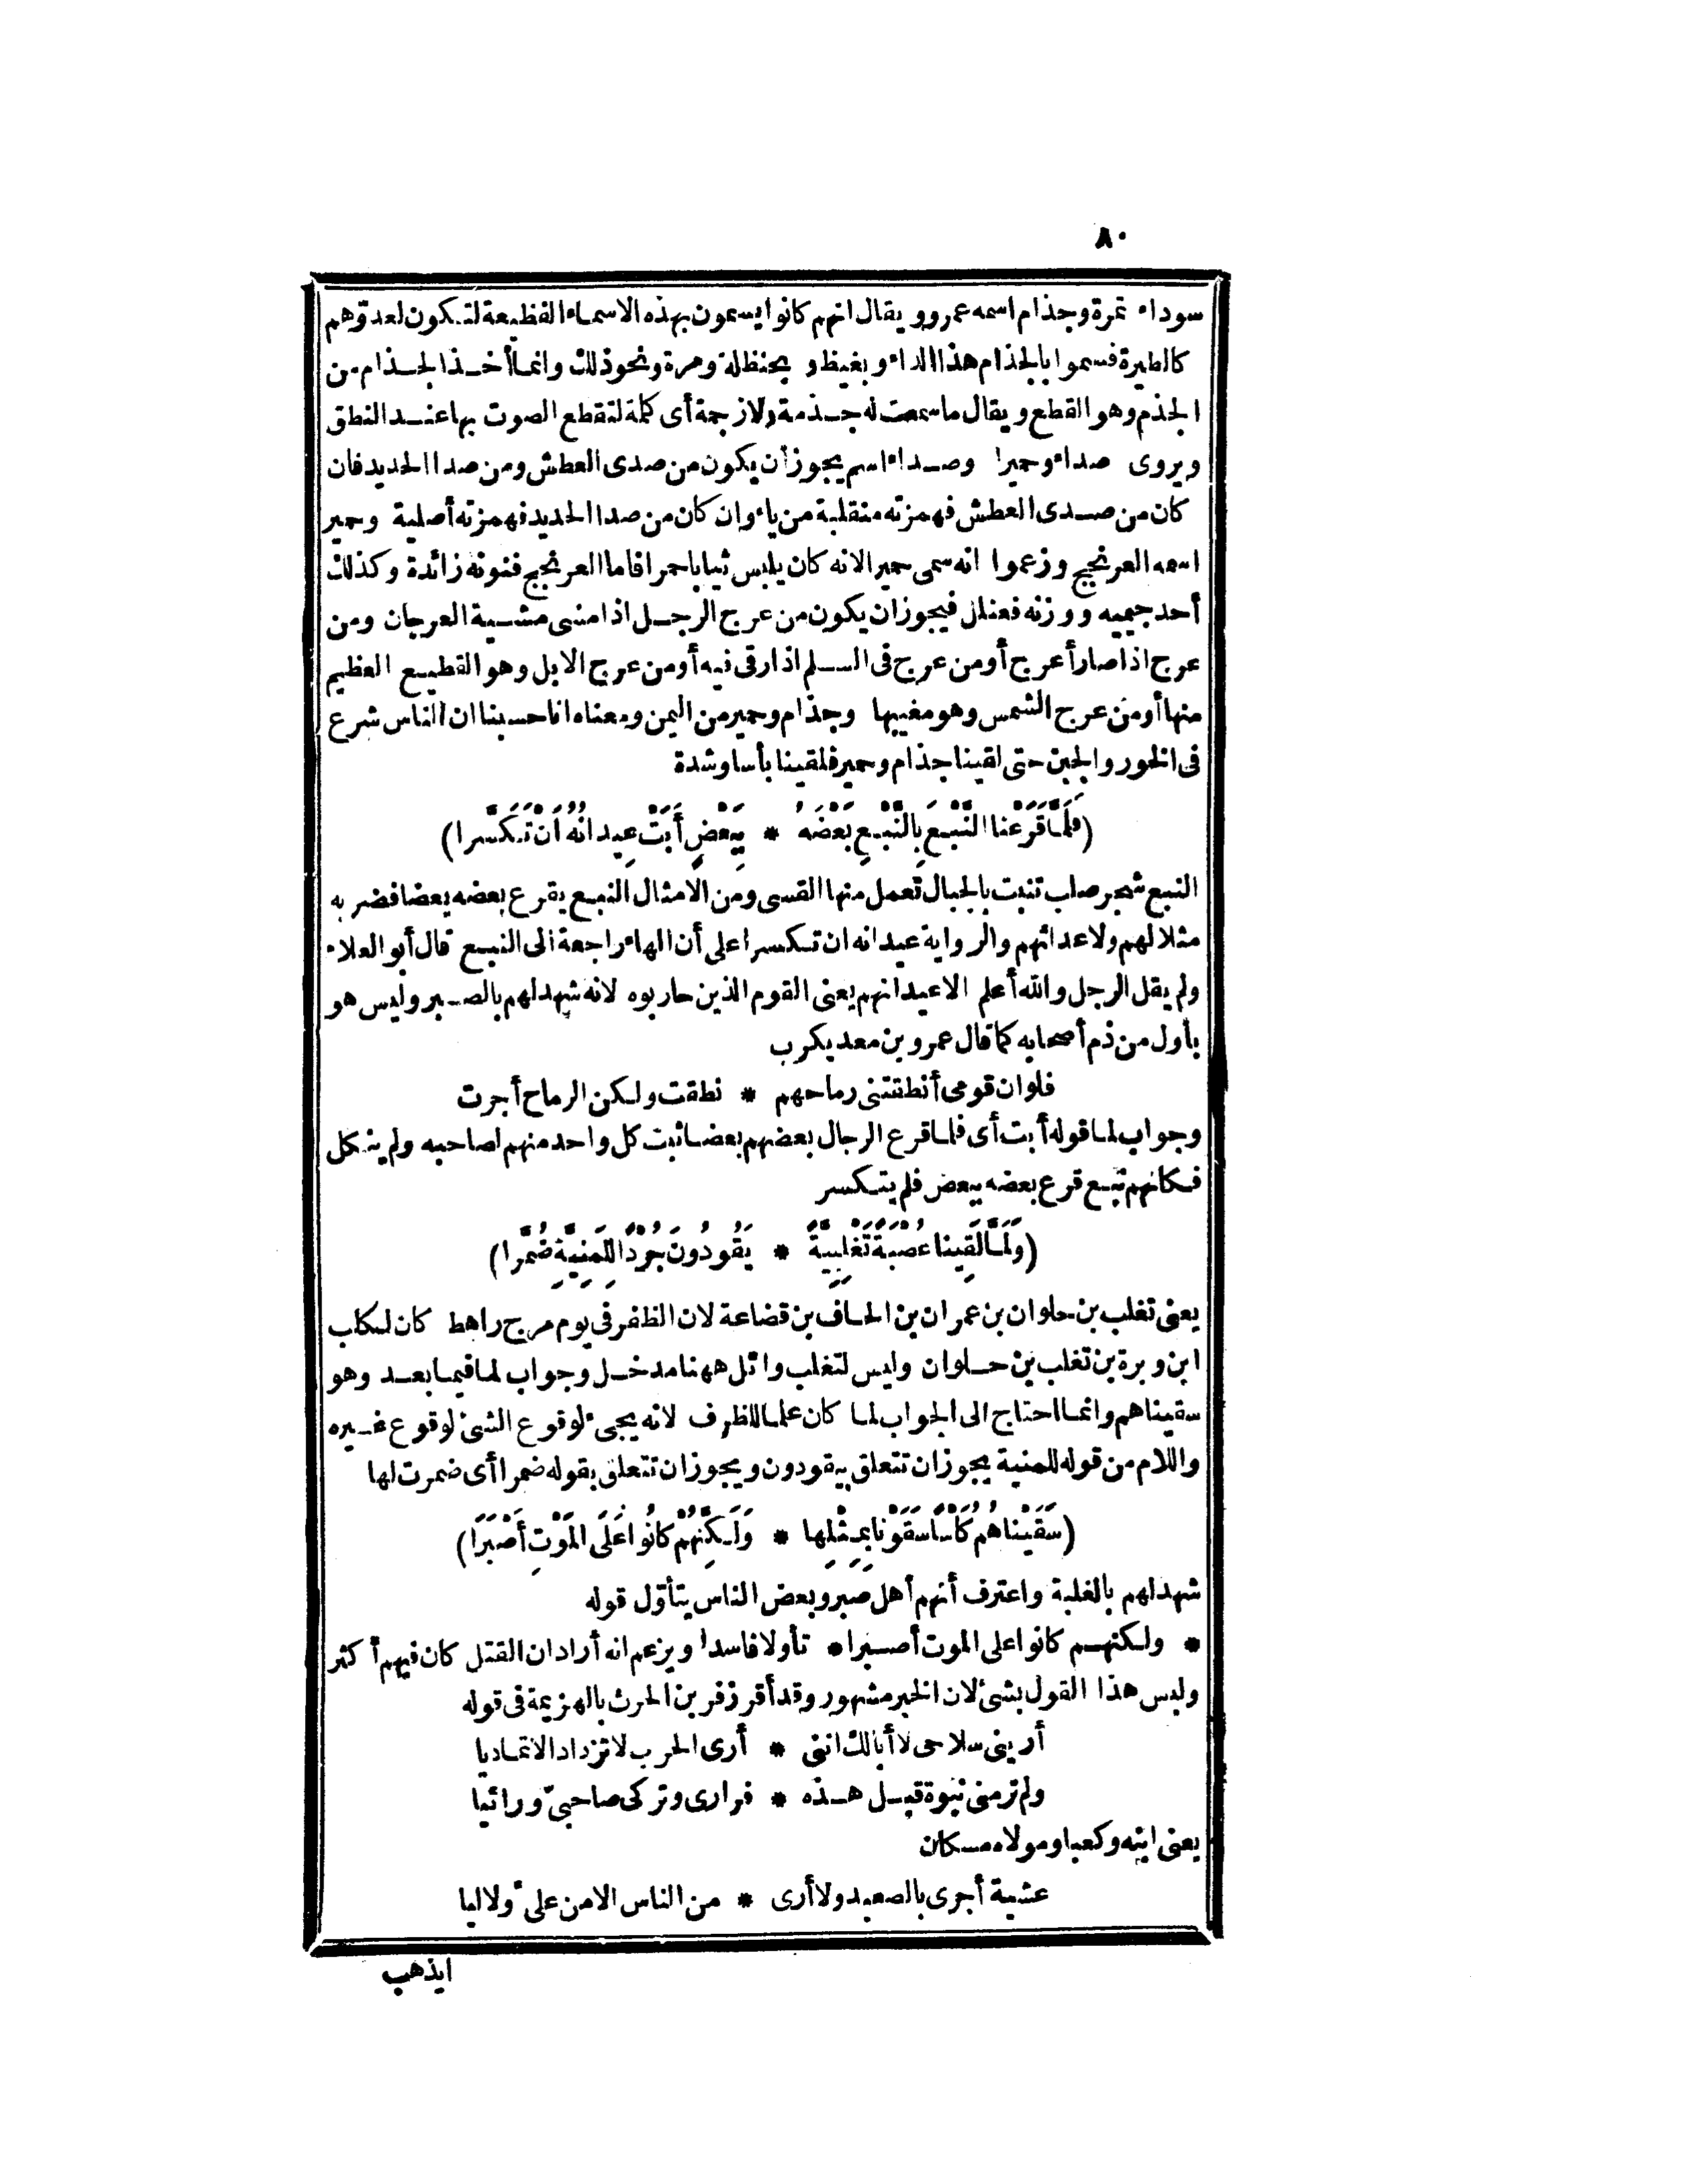 ٨٠
سوداء تمرة وجذام اسمه عمرو ويقال انهم كانوا يسمون بهذه الاسماء الفظيعة لتكون لعدوّهم
كالطيرة فسموا بالجذام هذا الداء وبغيظ و بحنظلة ومرة ونحو ذلك وانما أخذ الجذام من
الجذم وهو القطع ويقال ما سمعت له جذمة ولا زجمة أى كلمة لتقطع الصوت بها عند النطق
ويروى صداء وحميرا وصداء اسم يجوز أن يكون من صدى العطش ومن صدا الحديد فان
كان من صدى العطش فهمزته منقلبة من ياء وان كان من صدا الحديد فهمزته أصلية وحمير
اسمه العرنجج وزعموا انه سمى حمير الانه كان يلبس ثيابا حمرا فاما العرنجج فنونه زائدة وكذلك
أحد جيميه ووزنه فعنلل فيجوز ان يكون من عرج الرجل اذا مشى مشية العرجان ومن
عرج اذا صار أعرج أو من عرج فى السلم اذا رقى فيه أو من عرج الابل وهو القطيع العظيم
منها أو من عرج الشمس وهو مغيبها وجذام وحمير من اليمن ومعناه انا حسبنا ان الناس شرع
فى الخور والجبن حتى لقينا جذام وحمير فلقينا بأسا وشدة
(فَلَمَّا قَرَعْنا النَّبْعَ بِالنَّبْعِ بَعْضَهُ * بِبَعْضٍ أَبَتْ عِيدانُهُ أَنْ تَكَسَّرا)
النبع شجر صلب تنبت بالجبال تعمل منها القسى ومن الامثال النبع يقرع بعضه بعضا فضربه
مثلا لهم ولاعدائهم والرواية عيدانه ان تكسرا على أن الهاء راجعة الى النبع قال أبو العلاء
ولم يقل الرجل والله أعلم الا عيدانهم يعنى القوم الذين حاربوه لانه شهد لهم بالصبر وليس هو
بأول من ذم أصحابه كما قال عمرو بن معديكرب
فلو ان قومى أنطقتنى رماحهم * نطقت ولكن الرماح أجرت
وجواب لما قوله أبت أى فلما قرع الرجال بعضهم بعضا ثبت كل واحد منهم لصاحبه ولم ينكل
فكانهم نبع قرع بعضه ببعض فلم يتكسر
(وَلَمَّا لَقِينا عُصْبَةً تَغْلِبِيَّةً * يَقُودُونَ جُرْدًا لِلْمَنِيَّةِ ضُمَّرا)
يعنى تغلب بن حلوان بن عمران بن الحاف بن قضاعة لان الظفر فى يوم مرج راهط كان لكلب
ابن وبرة بن تغلب بن حلوان وليس لتغلب وائل ههنا مدخل وجواب لما فيما بعد وهو
سقيناهم وانما احتاج الى الجواب لما كان علما للظرف لانه يجىء لوقوع الشئ لوقوع غيره
واللام من قوله للمنية يجوز ان تتعلق بيقودون ويجوز ان تتعلق بقوله ضمرا أى ضمرت لها
(سَقَيْناهُمُ كَأْسًا سَقَوْنا بِمِثْلِها * وَلَكِنَّهُمْ كانُوا عَلَى المَوْتِ أَصْبَرَا)
شهد لهم بالغلبة واعترف أنهم أهل صبر وبعض الناس يتأوّل قوله
* ولكنهم كانوا على الموت أصبرا * تأولا فاسدا ويزعم انه أراد ان القتل كان فيهم أكثر
وليس هذا القول بشئ لان الخبر مشهور وقد أقر زفر بن الحرث بالهزيمة فى قوله
أرينى سلاحى لا أبالك اننى * أرى الحرب لا تزداد الا تماديا
ولم تر منى نبوة قبل هذه * فرارى وتركى صاحبىّ ورائيا
يعنى ابنه وكعبا ومولاه مسكان
عشية أجرى بالصعيد ولا أرى * من الناس الا من علىّ ولا ليا
ايذهب